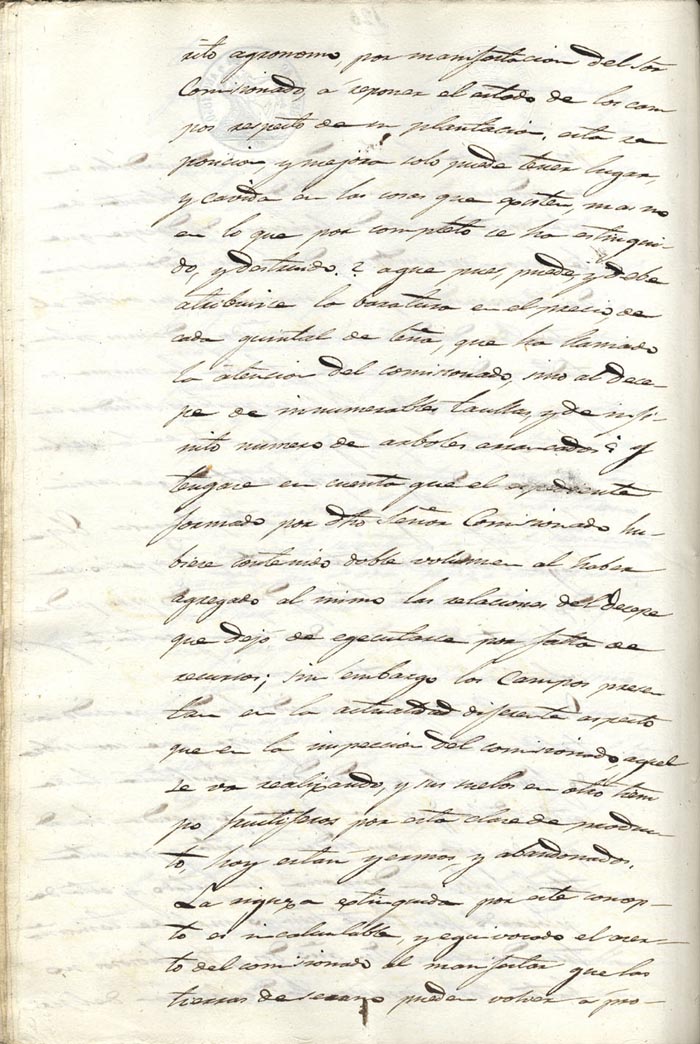 rito agronomo, por manifestacion del Sor
Comisionado a reponer el estado de los cam
pos respecto de su plantacion, esta re
posicion, y mejora solo puede tener lugar,
y cavida en las cosas que existen, mas no
en lo que por completo se ha estingui-
do, y destruido. ? a que pues, puede, y debe
atribuirse la baratura en el precio de
cada quintal de leña, que ha llamado
la atencion del comisionado, sino al dece-
pe de innumerables taullas, y de infi-
nito numero de arboles arrancados? y
tengase en cuenta que el expediente
formado por dho Señor Comisionado hu-
biese contenido doble volumen al haber
agregado al mismo las relaciones del decepe
que dejó de egecutarse por falta de
recursos; sin embargo los Campos presen
tan en la actualidad diferente aspecto
que en la inspeccion del comisionado, aquel
se va realizando, y sus suelos en otro tiem
po fructiferos por esta clase de produc-
to, hoy estan yermos, y abandonados.
La riqueza estinguida por este concep-
to es incalculable, y equivocado el acer-
to del comisionado al manifestar que las
tierras de secano pueden volver a pro-